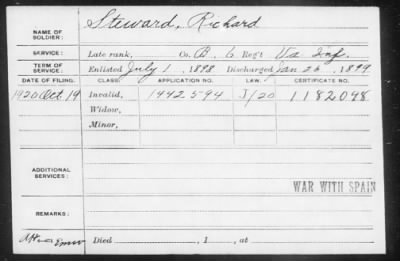 NAME OF SOLDIER: Steward, Richard
SERVICE: Late rank, Co. B, 6 Reg't Va Inf.
TERM OF SERVICE: Enlisted July 1, 1898 Discharged Jan 26, 1899
DATE OF FILING. CLASS. APPLICATION NO. LAW. CERTIFICATE NO.
1920 Oct 19 Invalid, 1442594 J/20 1182098
Widow,
Minor,
ADDITIONAL SERVICES:
WAR WITH SPAIN
REMARKS:
Died , 1 , at